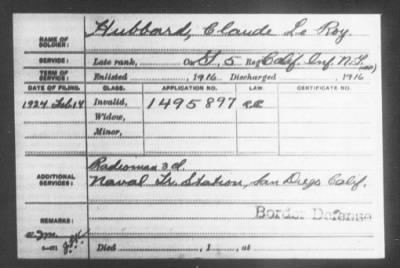 NAME OF SOLDIER: Hubbard, Claude Le Roy.
SERVICE: Late rank, Co. 5 Reg Calif. Inf. N.G.
TERM OF SERVICE: Enlisted , 1916 Discharged , 1916
DATE OF FILING. CLASS. APPLICATION NO. LAW. CERTIFICATE NO.
1924 Feb. 14 Invalid, 1495897
Widow,
Minor,
ADDITIONAL SERVICES: Radioman 3 cl.
Naval Tr. Station, San Diego Calif.
Border Defense
REMARKS:
Died , 1 , at